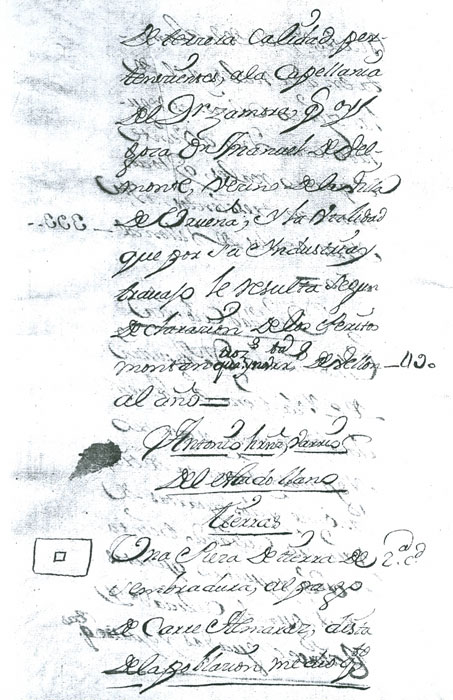 De tercera Calidad, per-
tenecientes, a la Capellania
del Dr Zamora, q oy
goza Dn Manuel de Bel-
monte, Vecino de la Villa
de Urueña, y la Utilidad
que por su Industria, y
travajo le resulta segun
declarazion de los Peritos
montan de Vellon 
al año
Antonio Varrio
del estado llano
tierras
Una Pieza de tierra de 2.ª cd
sembradura, al pago
de Carre Almaraz, dista
de la poblazion medio qto